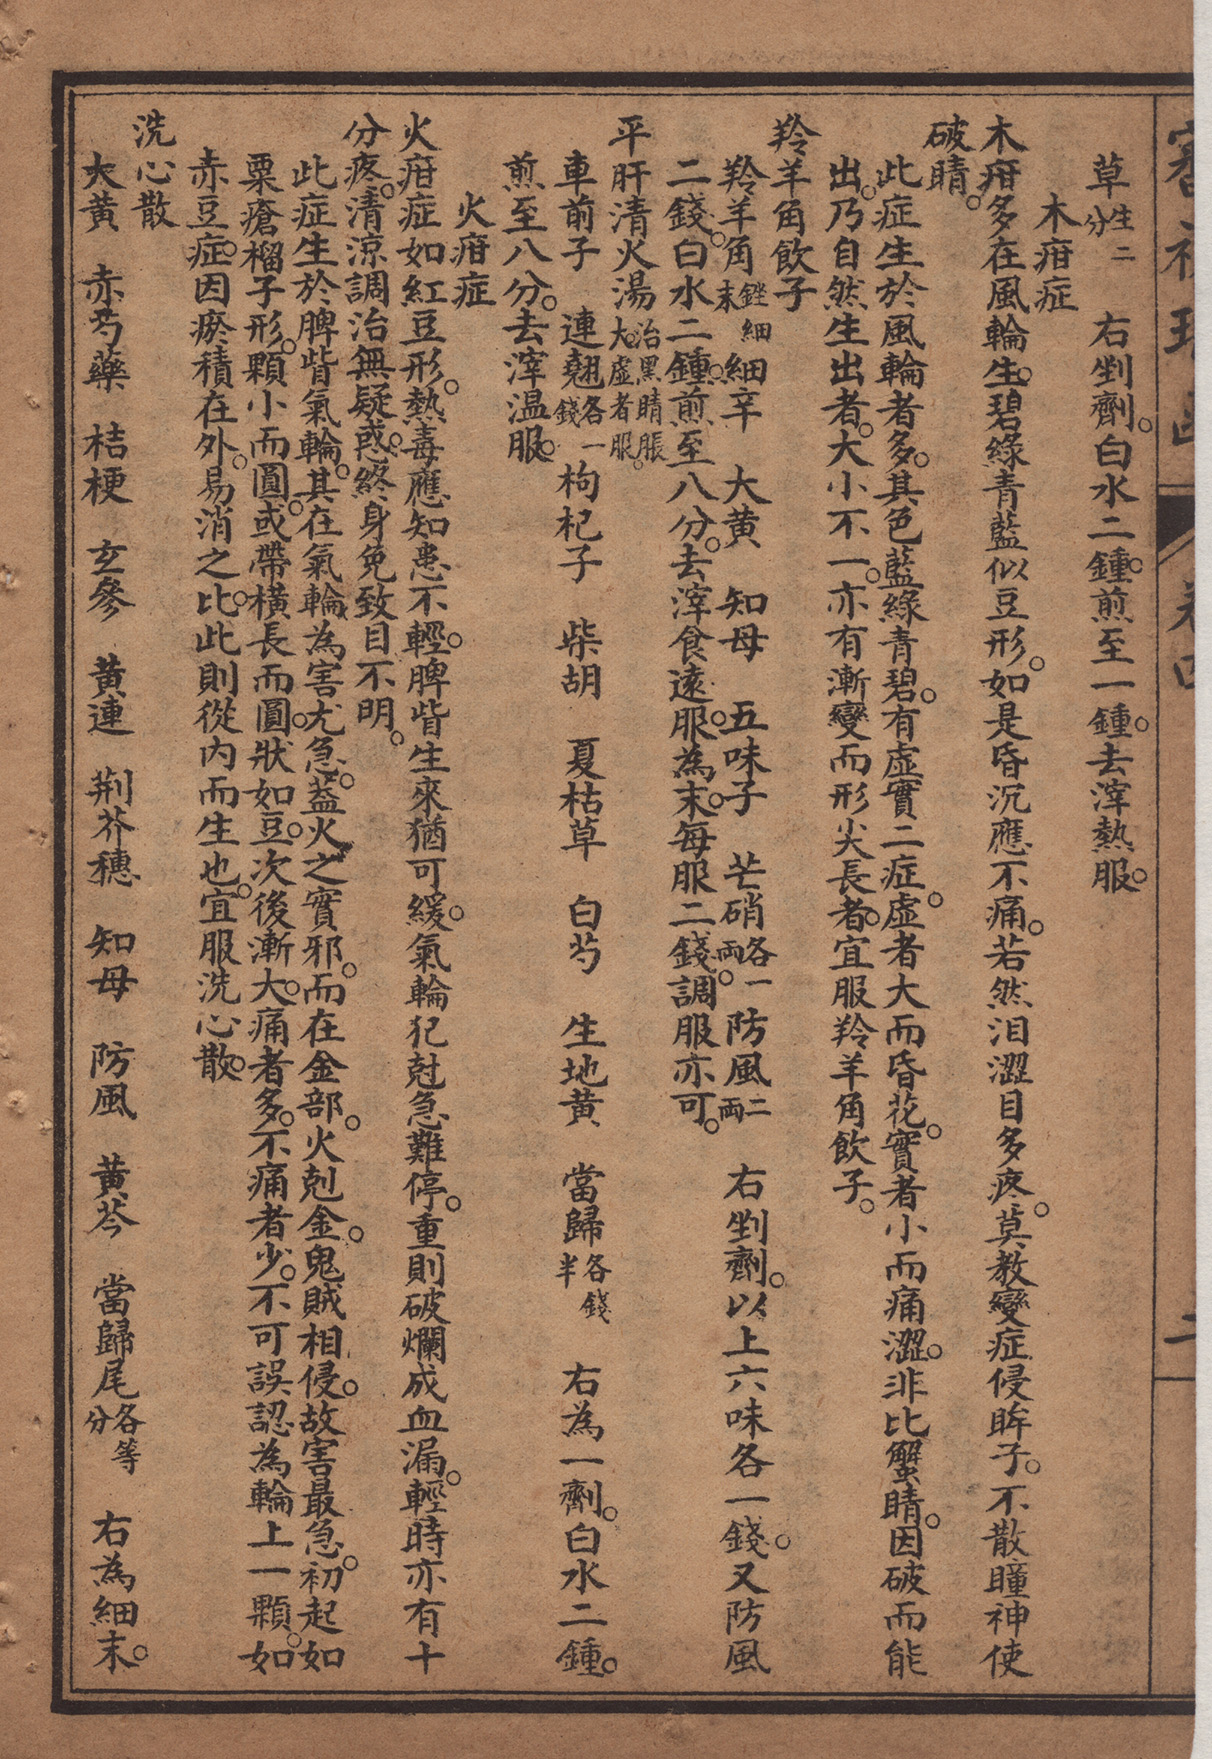 草生二分　右剉劑。白水二鍾。煎至一鍾。去滓熱服。
木疳症
木疳多在風輪生。碧綠青藍似豆形。如是昏沉應不痛。若然泪澀目多疼。莫教變症侵眸子。不散瞳神使
破睛。
此症生於風輪者多。其色藍綠青碧。有虛實二症。虛者大而昏花。實者小而痛澀。非比蟹睛。因破而能
出。乃自然生出者。大小不一。亦有漸變而形尖長者。宜服羚羊角飲子。
羚羊角飲子
羚羊角銼細末　細辛　大黄　知母　五味子　芒硝各一兩。防風二兩　右剉劑。以上六味各一錢。又防風
二錢。白水二鍾。煎至八分。去滓食遠服。為末。每服二錢。調服亦可。
平肝清火湯治黑睛脹大。虛者服。
車前子　連翹各一錢　枸杞子　柴胡　夏枯草　白芍　生地黄　當歸各錢半　右為一劑。白水二鍾。
煎至八分。去滓溫服。
火疳症
火疳症如紅豆形。熱毒應知患不輕。脾眥生來猶可緩。氣輪犯尅急難停。重則破爛成血漏。輕時亦有十
分疼。清涼調治無疑惑。終身免致目不明。
此症生於脾眥氣輪。其在氣輪。為害尤急。葢火之實邪。而在金部。火剋金。鬼賊相侵。故害最急。初起如
粟瘡榴子形。顆小而圓。或帶橫長而圓。狀如豆。次後漸大。痛者多。不痛者少。不可誤認為輪上一顆。如
赤豆症。因瘀積在外。易消之比。此則從内而生也。宜服洗心散。
洗心散
大黄　赤芍藥　桔梗　玄參　黄連　荆芥穗　知母　防風　黄芩　當歸尾各等分　右為細末。